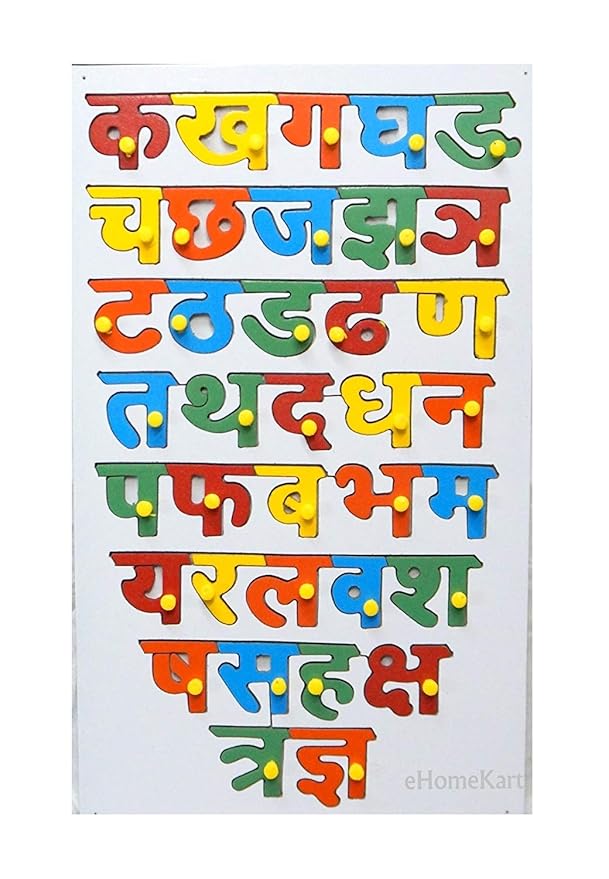 क ख ग घ ङ
च छ ज झ ञ
ट ठ ड ढ ण
त थ द ध न
प फ ब भ म
य र ल व श
ष स ह क्ष
त्र ज्ञ
eHomeKart